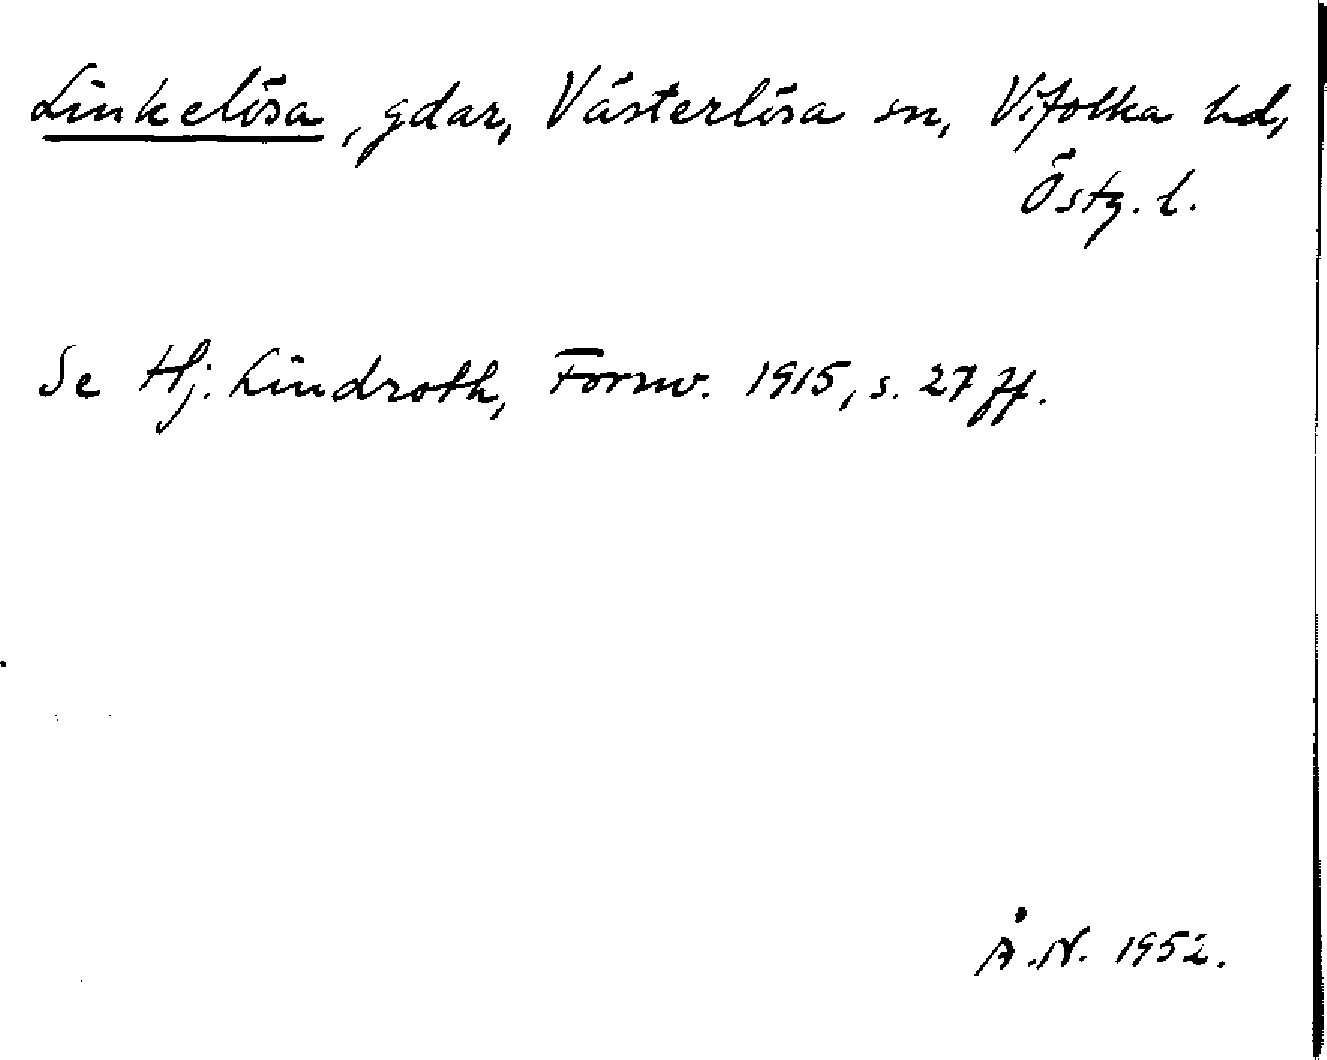 Linkelösa, gdar, Västerlösa sn, Vifolka hd,
Östg. l.
Se Hj. Lindroth, Fornv. 1915, s. 27 ff.
Å. N. 1952.